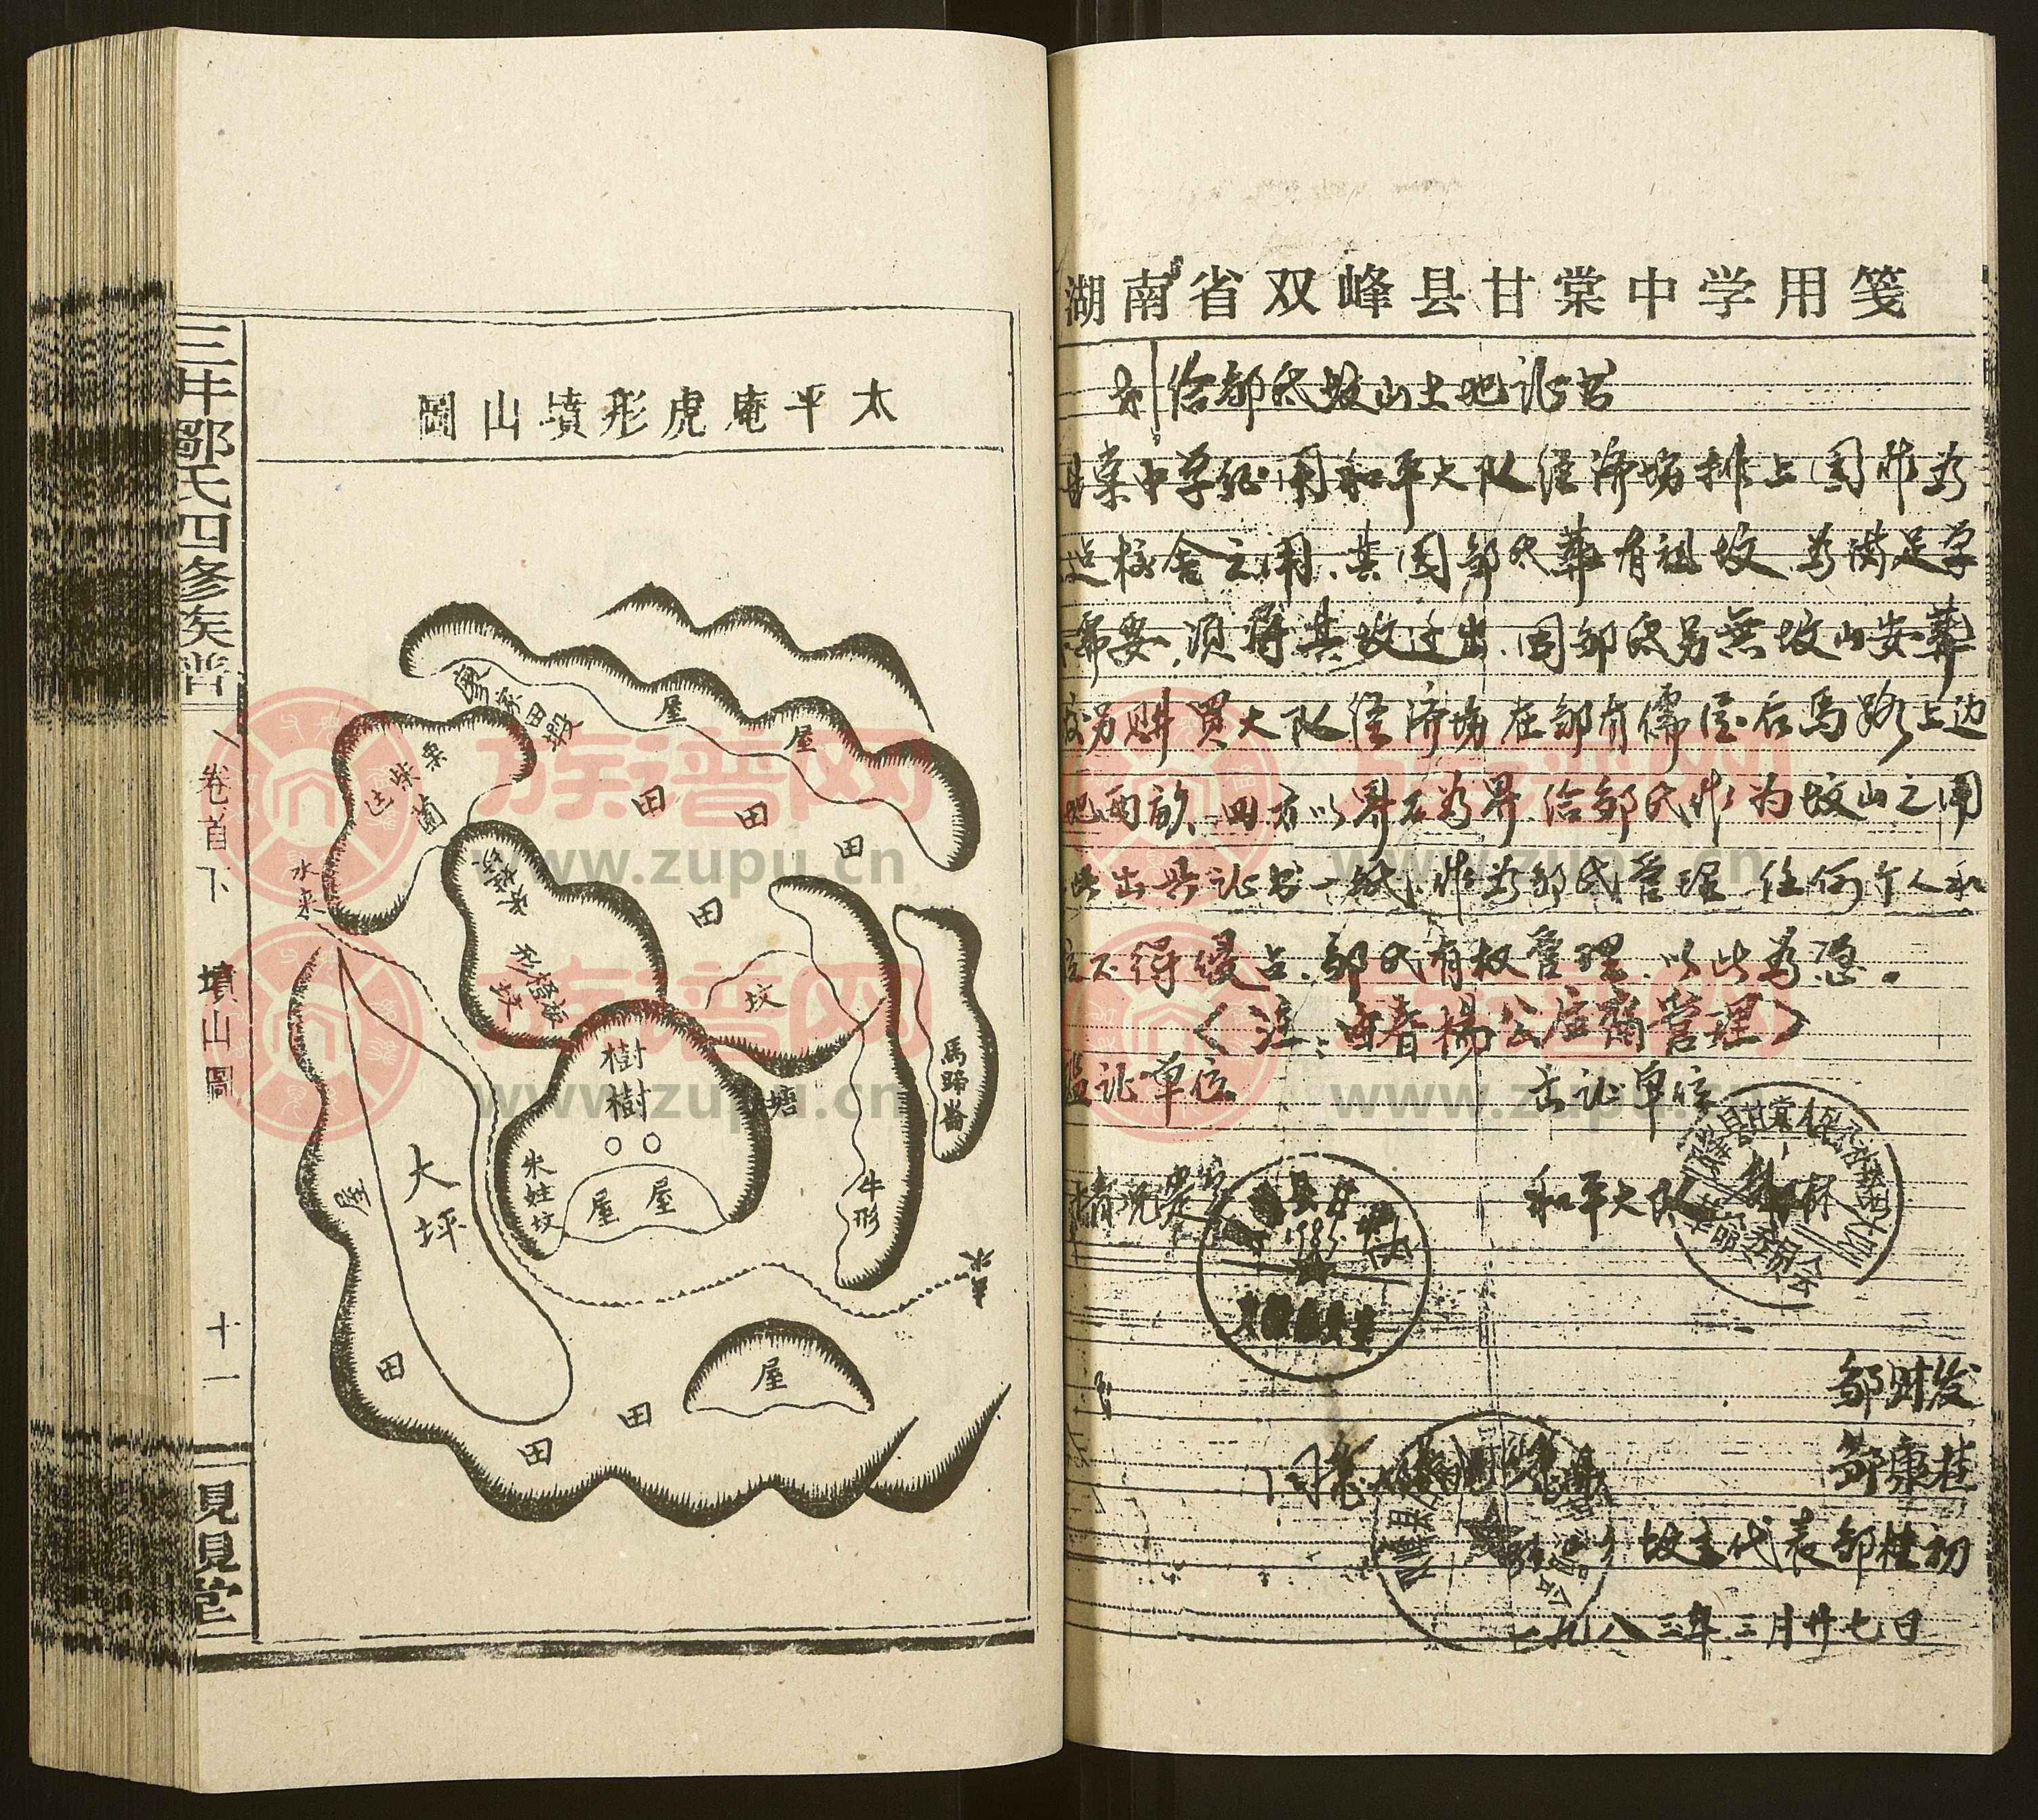 湖南省双峰县甘棠中学用笺
划给邹氏坟山土地证书
甘棠中学征用和平大队经济场排上园作为
造校舍之用、其园邹氏葬有祖坟、为满足学
需要、须将其坟迁出、因邹氏另無坟山安葬
校另购買大队经济场在邹有儒屋后馬路上边
地两亩、四方以界石为界、给邹氏作为坟山之用
此出具证书一纸、作为邹氏管理、任何个人和
位不得侵占、邹氏有权管理、以此为凭。
监证单位
出证单位
和平大队
邹财发
邹康桂
坟主代表邹桂初
一九八三年三月廿七日
太平庵虎形墳山圖
屋
屋
田
田
田
田
水來
坟
樹
樹
塘
馬蹄崙
牛形
朱姓坟
屋
屋
大坪
屋
田
田
田
屋
三井鄒氏四修族譜
卷首下
墳山圖
十一
族谱网
www.zupu.cn
族谱网
www.zupu.cn
族谱网
www.zupu.cn
族谱网
www.zupu.cn